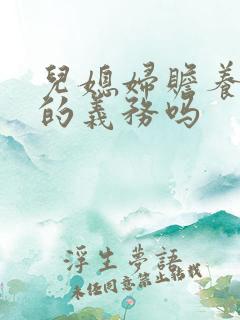 兒媳婦贍養
的義務吗
浮生夢語
未经同意禁止转载